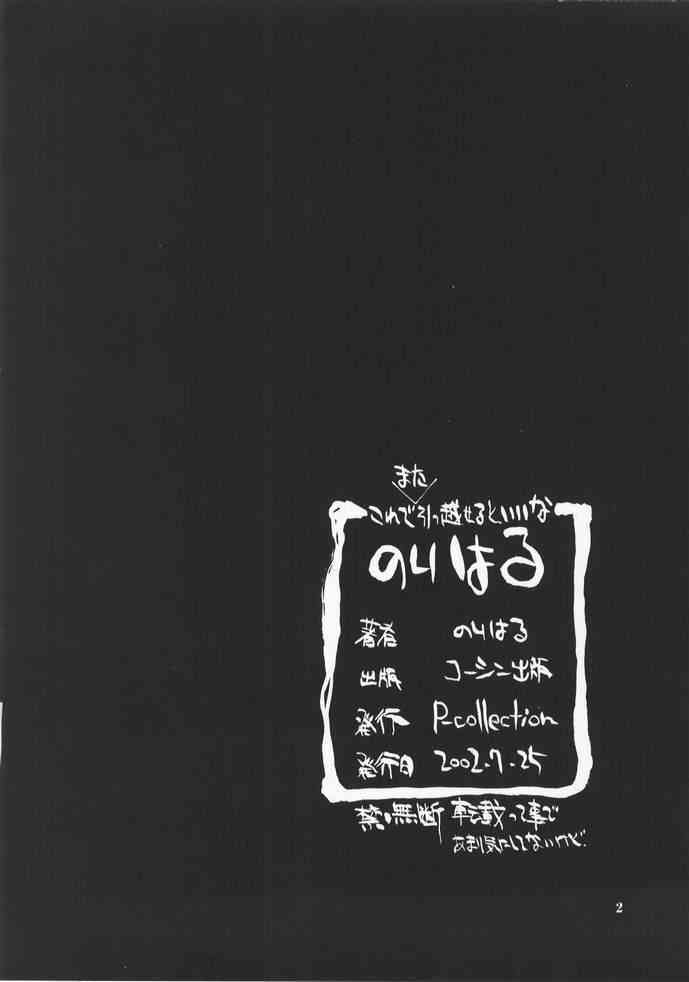 また
これで引っ越せるといいな
のりはる
著者 のりはる
出版 コーシン出版
発行 P-collection
発行日 2002.7.25
禁・無断転載って事で
あまり気にしてないけど.
2